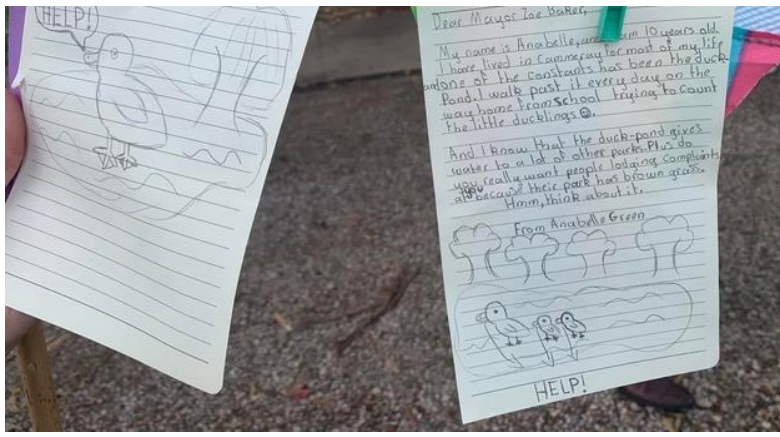 HELP!
Dear Mayor Zoe Baker,
My name is Anabelle, and I am 10 years old
I have lived in Cammeray for most of my life
and one of the constants has been the duck
Pond. I walk past it every day on the
way home from school trying to count
the little ducklings☺.
And I know that the duck-pond gives
water to a lot of other parks. Plus do
you really want people lodging complaints
at you because their park has brown grass.
Hmm, think about it.
From Anabelle Green
HELP!